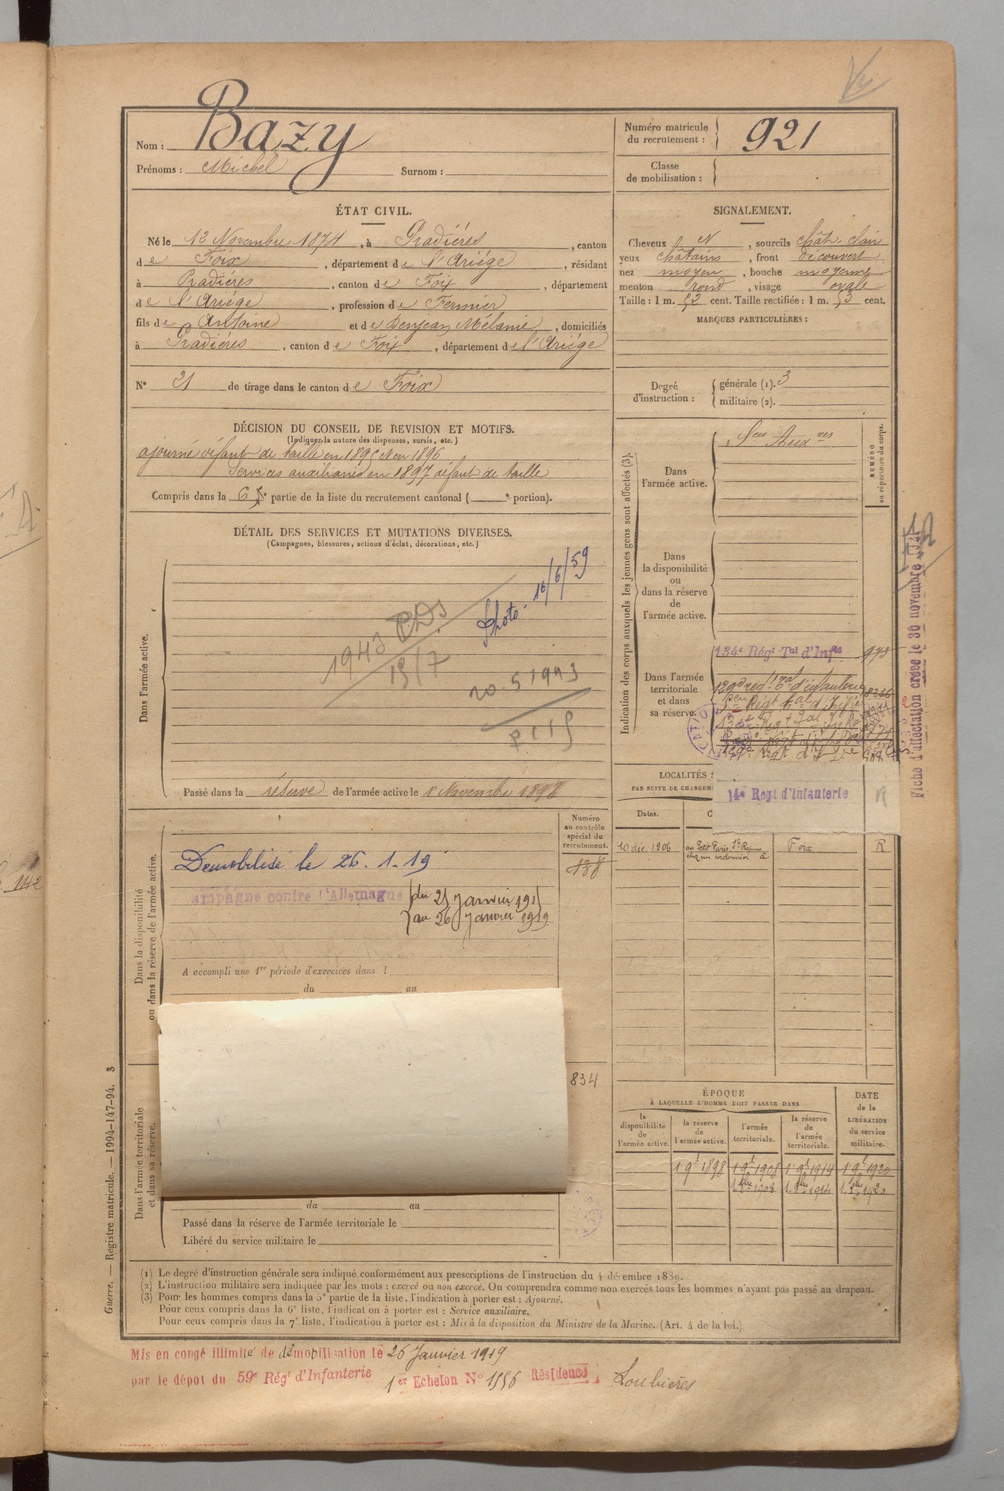 Nom : Bazy
Prénoms : Michel Surnom :
Numéro matricule du recrutement : 921
Classe de mobilisation :
ÉTAT CIVIL.
Né le 12 Novembre 1874, à Pradières, canton
de Foix, département de l'Ariège, résidant
à Pradières, canton de Foix, département
de l'Ariège, profession de Fermier
fils de Antoine et de Mélanie, domiciliés
à Pradières, canton de Foix, département de l'Ariège
N° 21 de tirage dans le canton de Foix
SIGNALEMENT.
Cheveux N, sourcils chât. clair
yeux châtains, front découvert
nez moyen, bouche moyenne
menton rond, visage ovale
Taille : 1 m. 52 cent. Taille rectifiée : 1 m. 53 cent.
MARQUES PARTICULIÈRES :
Degré d'instruction : générale (1). 3
militaire (2).
DÉCISION DU CONSEIL DE REVISION ET MOTIFS.
(Indiquer la nature des dispenses, sursis, etc.)
ajourné défaut de taille en 1895 et en 1896
Services auxiliaires en 1897 défaut de taille
Compris dans la 6e partie de la liste du recrutement cantonal ( e portion).
DÉTAIL DES SERVICES ET MUTATIONS DIVERSES.
(Campagnes, blessures, actions d'éclat, décorations, etc.)
Dans l'armée active.
Photo - 16/6/59
1943
19/7
20.5 1993
Passé dans la réserve de l'armée active le 1er Novembre 1898
Indication des corps auxquels les jeunes gens sont affectés (3).
NUMÉRO au répertoire du corps.
Dans l'armée active.
Sces Auxres
Dans la disponibilité ou dans la réserve de l'armée active.
Dans l'armée territoriale et dans sa réserve.
134e Régt Tal d'Infie 973
14e Régt d'Infanterie R
Fiche d'affectation créée le 30 novembre
LOCALITÉS
PAR SUITE DE CHANGEM
Dates.
10 déc. 1906 Foix R
Numéro au contrôle spécial du recrutement.
138
Dans la disponibilité ou dans la réserve de l'armée active.
Demobilisé le 26.1.19
ampagne contre l'Allemagne
au 26 Janvier 1919
A accompli une 1re période d'exercices dans l
du au
834
Dans l'armée territoriale et dans sa réserve.
du au
Passé dans la réserve de l'armée territoriale le
Libéré du service militaire le
ÉPOQUE
À LAQUELLE L'HOMME DOIT PASSER DANS
la disponibilité de l'armée active.
la réserve de l'armée active.
l'armée territoriale.
la réserve de l'armée territoriale.
DATE de la LIBÉRATION du service militaire.
1 9bre 1898 1 9bre 1908 1 9bre 1914 1 9bre 1920
(1) Le degré d'instruction générale sera indiqué conformément aux prescriptions de l'instruction du 4 décembre 1889.
(2) L'instruction militaire sera indiquée par les mots : exercé ou non exercé. On comprendra comme non exercés tous les hommes n'ayant pas passé au drapeau.
(3) Pour les hommes compris dans la 5e partie de la liste, l'indication à porter est : Ajourné.
Pour ceux compris dans la 6e liste, l'indication à porter est : Service auxiliaire.
Pour ceux compris dans la 7e liste, l'indication à porter est : Mis à la disposition du Ministre de la Marine. (Art. 4 de la loi.)
Guerre. — Registre matricule. — 1994-147-94. 3
Mis en congé illimité de démobilisation le 26 Janvier 1919
par le dépot du 59e Régt d'Infanterie 1er Echelon N° 1556 Résidence Loubières